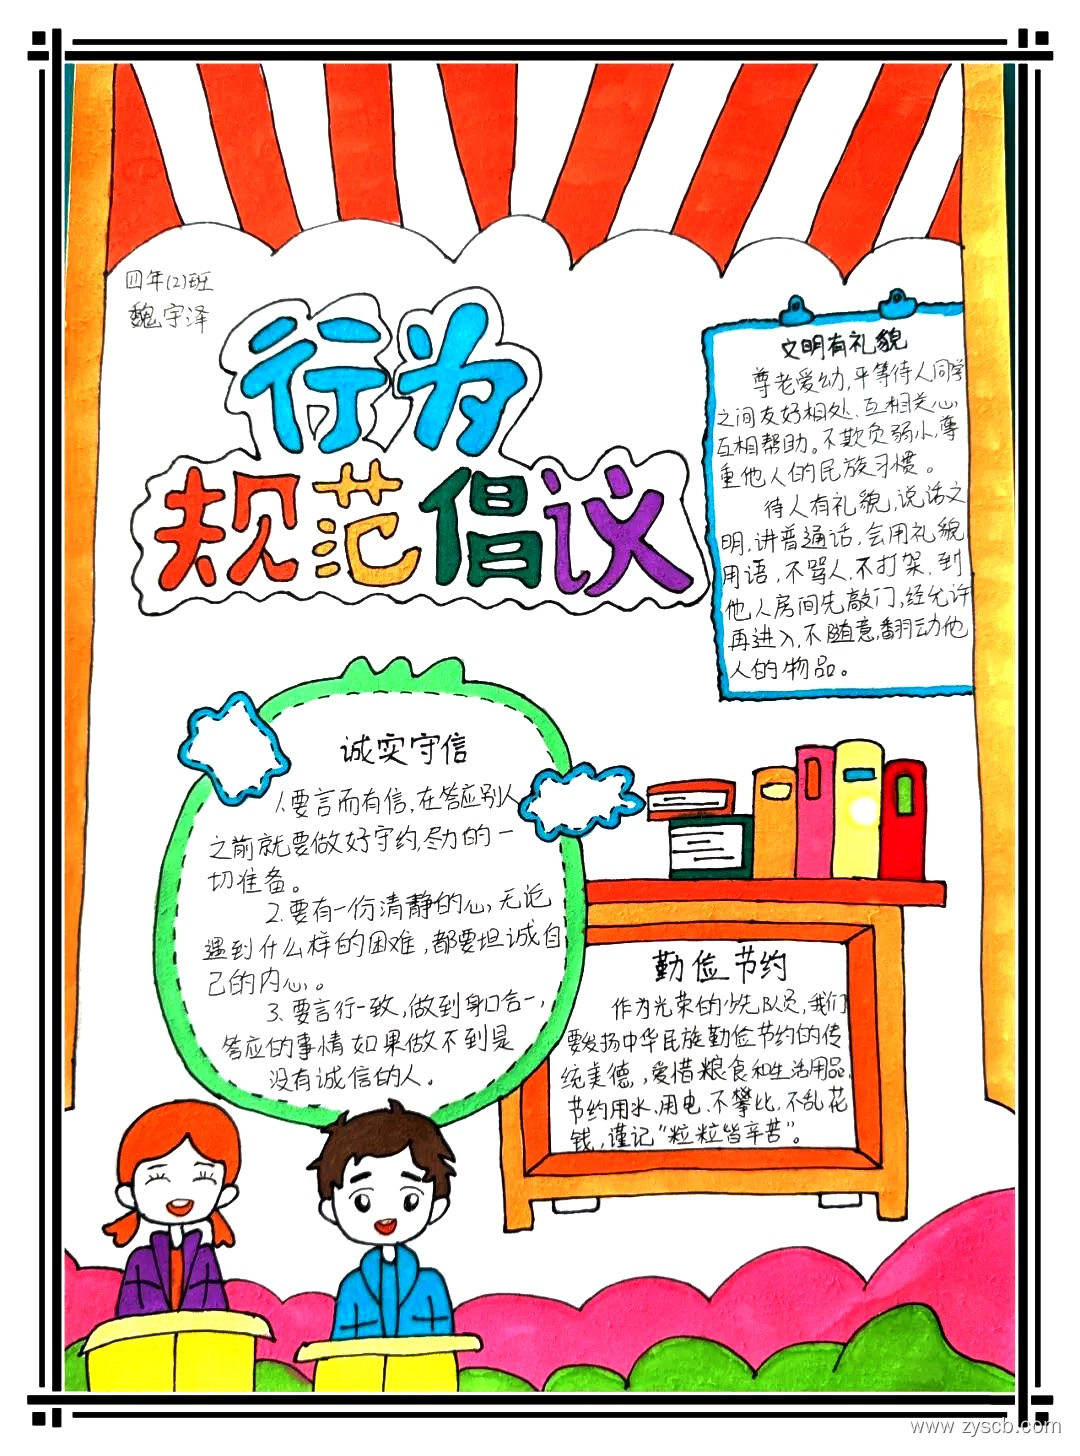 四年(2)班
魏宇泽
行为
规范倡议
文明有礼貌
尊老爱幼,平等待人同学
之间友好相处、互相关心,
互相帮助。不欺负弱小,尊
重他人的民族习惯。
待人有礼貌,说话文
明,讲普通话,会用礼貌
用语,不骂人,不打架,到
他人房间先敲门,经允许
再进入,不随意翻动他
人的物品。
诚实守信
1.要言而有信,在答应别人
之前就要做好守约,尽力的一
切准备。
2.要有一份清静的心,无论
遇到什么样的困难,都要坦诚自
己的内心。
3.要言行一致,做到身口合一,
答应的事情如果做不到是
没有诚信的人。
勤俭节约
作为光荣的少先队员,我们
要发扬中华民族勤俭节约的传
统美德,爱惜粮食和生活用品,
节约用水、用电、不攀比,不乱花
钱,谨记"粒粒皆辛苦"。
www.zyscb.com